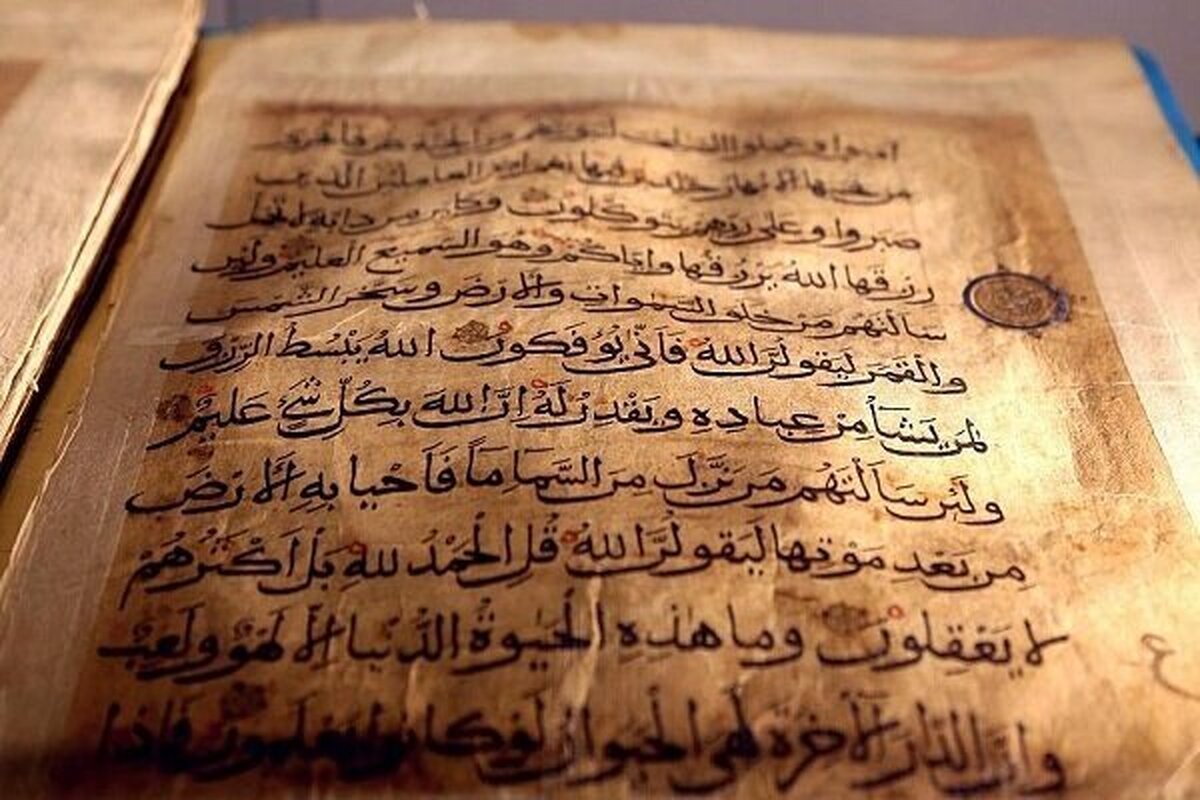 آمنوا وعملوا الصالحات لنبوئنهم من الجنة غرفا تجرى
من تحتها الانهار خالدين فيها نعم اجر العاملين الذين
صبروا وعلى ربهم يتوكلون وكاين من دابة لا تحمل
رزقها الله يرزقها واياكم وهو السميع العليم ولئن
سالتهم من خلق السموات والارض وسخر الشمس
والقمر ليقولن الله فانى يؤفكون الله يبسط الرزق
لمن يشا من عباده ويقدر له ان الله بكل شئ عليم
ولئن سالتهم من نزل من السما ما فاحيا به الارض
من بعد موتها ليقولن الله قل الحمد لله بل اكثرهم
لا يعقلون وما هذه الحيوة الدنيا الا لهو ولعب
وان الدار الاخرة لهى الحيوان لو كانوا يعلمون فاذا
ع